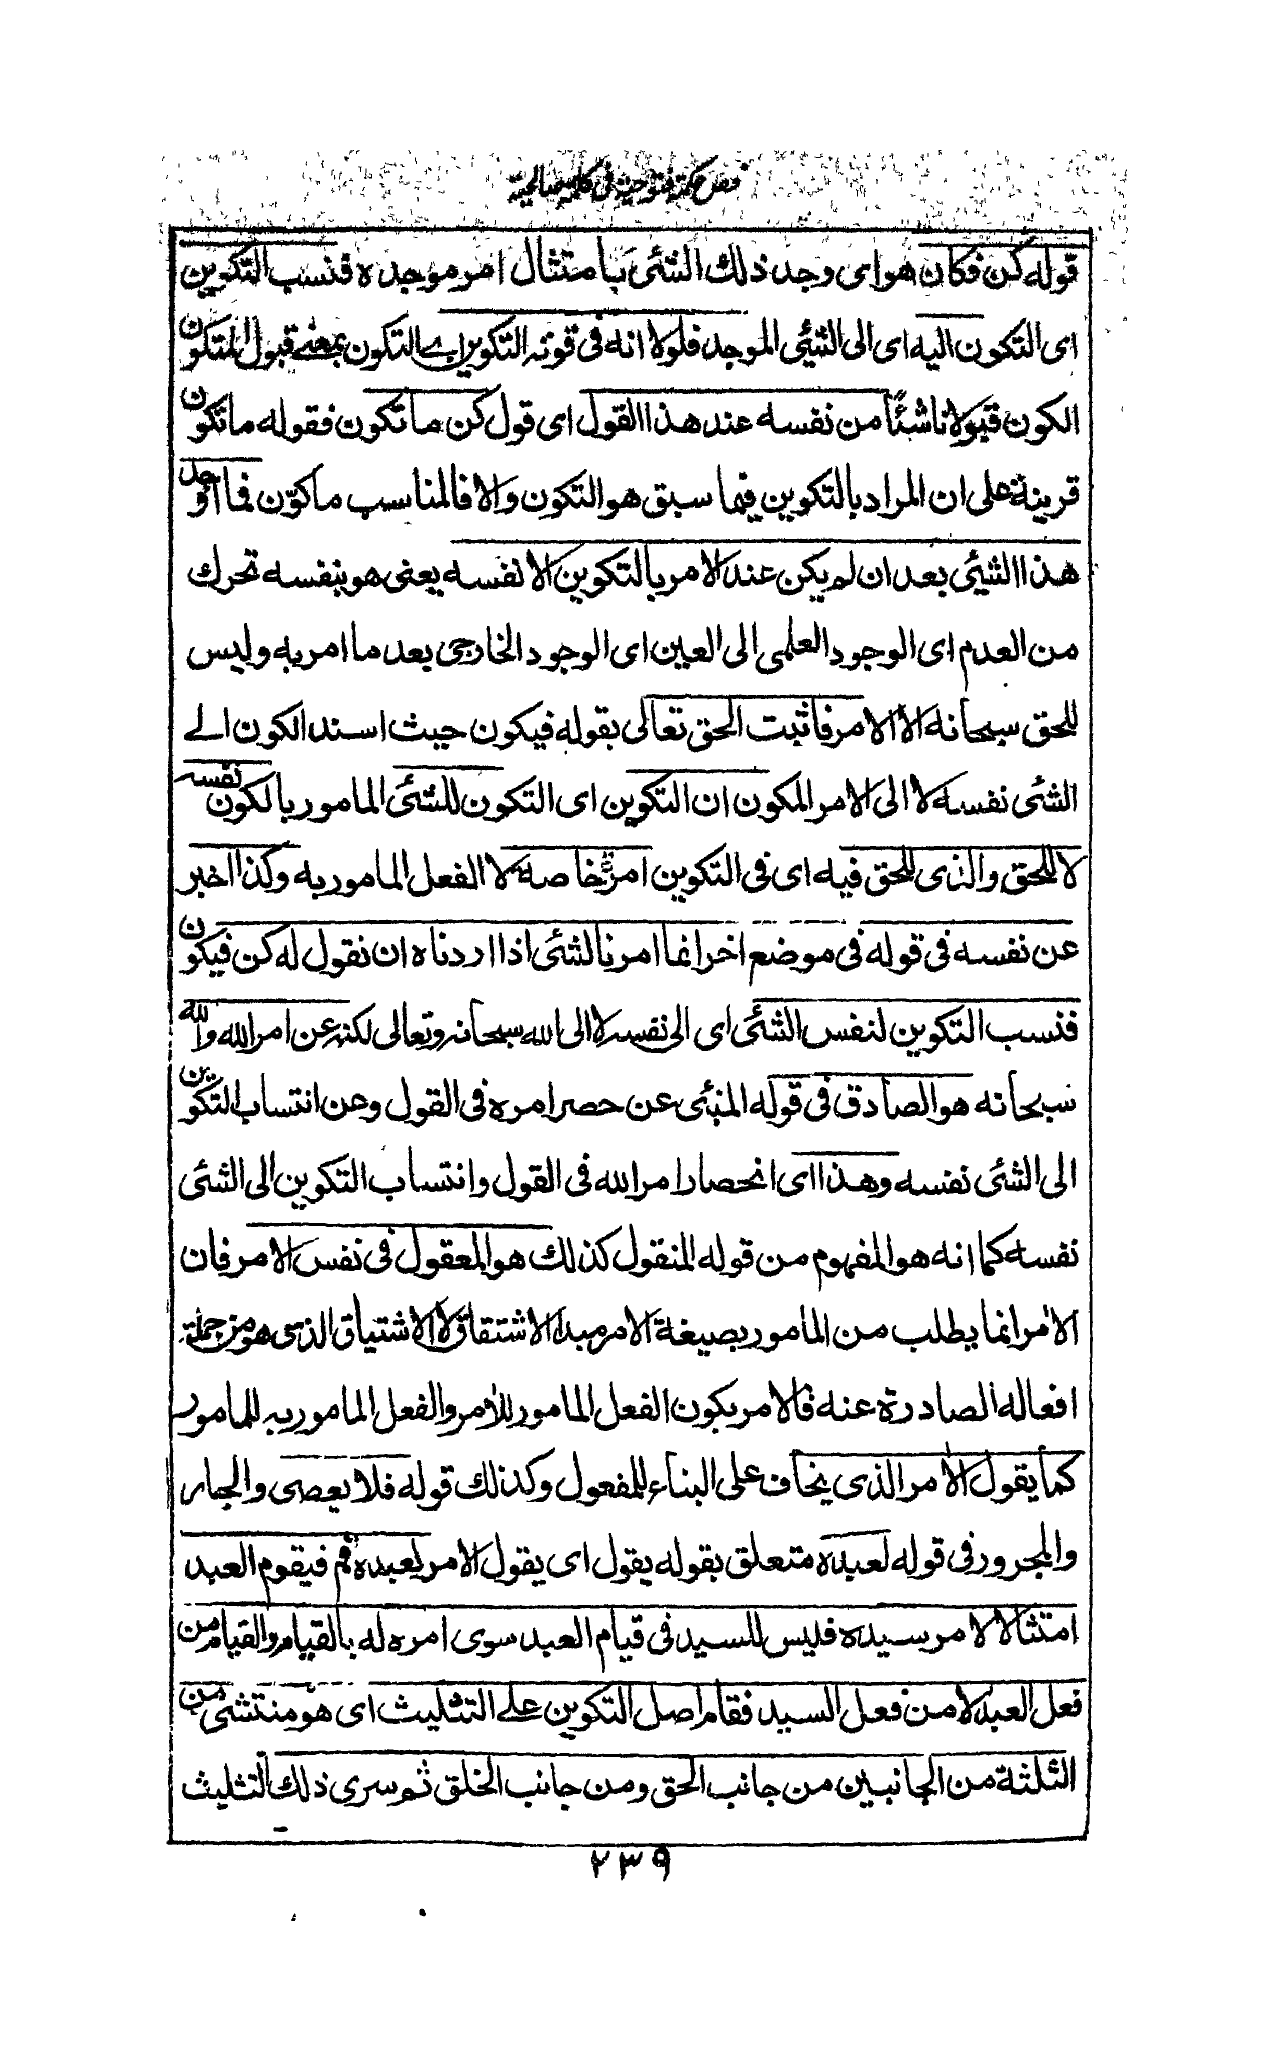 فص حكمة فتوحية في كلمة صالحية
قوله كن فكان هواى وجد ذلك الشئى بامتثال امر موجده فنسب التكوين
اى التكون اليه اى الى الشئى الموجد فلولا انه فى قوته التكوين اے التكون بمعنے قبول المتكون
الكون قبولا ناشئًا من نفسه عند هذا القول اى قول كن ما تكون فقوله ما تكون
قرينة على ان المراد بالتكوين فيما سبق هو التكون والا فالمناسب ما كوّن فما اوجد
هذا الشئى بعد ان لم يكن عند الامر بالتكوين الا نفسه يعنى هو بنفسه تحرك
من العدم اى الوجود العلمى الى العين اى الوجود الخارجى بعد ما امر به وليس
للحق سبحانه الا الامر فاثبت الحق تعالى بقوله فيكون حيث اسند الكون الے
الشئى نفسه لا الى الامر المكون ان التكوين اى التكون للشئى المامور بالكون نفسه
لا للحق والذى للحق فيه اى فى التكوين امره خاصة لا الفعل المامور به وكذا اخبر
عن نفسه فى قوله فى موضع اخر انما امرنا لشئى اذا اردناه ان نقول له كن فيكون
فنسب التكوين لنفس الشئى اى الى نفسه لا الى الله سبحانه وتعالى لكنه عن امر الله والله
سبحانه هو الصادق فى قوله المنبئى عن حصر امره فى القول وعن انتساب التكوين
الى الشئى نفسه وهذا اى انحصار امر الله فى القول وانتساب التكوين الى الشئى
نفسه كما انه هو المفهوم من قوله المنقول كذلك هو المعقول فى نفس الامر فان
الامر انما يطلب من المامور بصيغة الامر مبدا الاشتقاق لا الاشتياق الذى هو من جملة
افعاله الصادرة عنه فالامر يكون الفعل المامور للامر والفعل المامور به للمامور
كما يقول الامر الذى يخاف على البناء للمفعول وكذلك قوله فلا يعصى والجار
والمجرور فى قوله لعبده متعلق بقوله يقول اى يقول الامر لعبده قم فيقوم العبد
امتثالا لامر سيده فليس للسيد فى قيام العبد سوى امره له بالقيام والقيام من
فعل العبد لا من فعل السيد فقام اصل التكوين علے التثليث اى هو منتشئ من
الثلثة من الجانبين من جانب الحق ومن جانب الخلق ثم سرى ذلك التثليث
٢٣٩